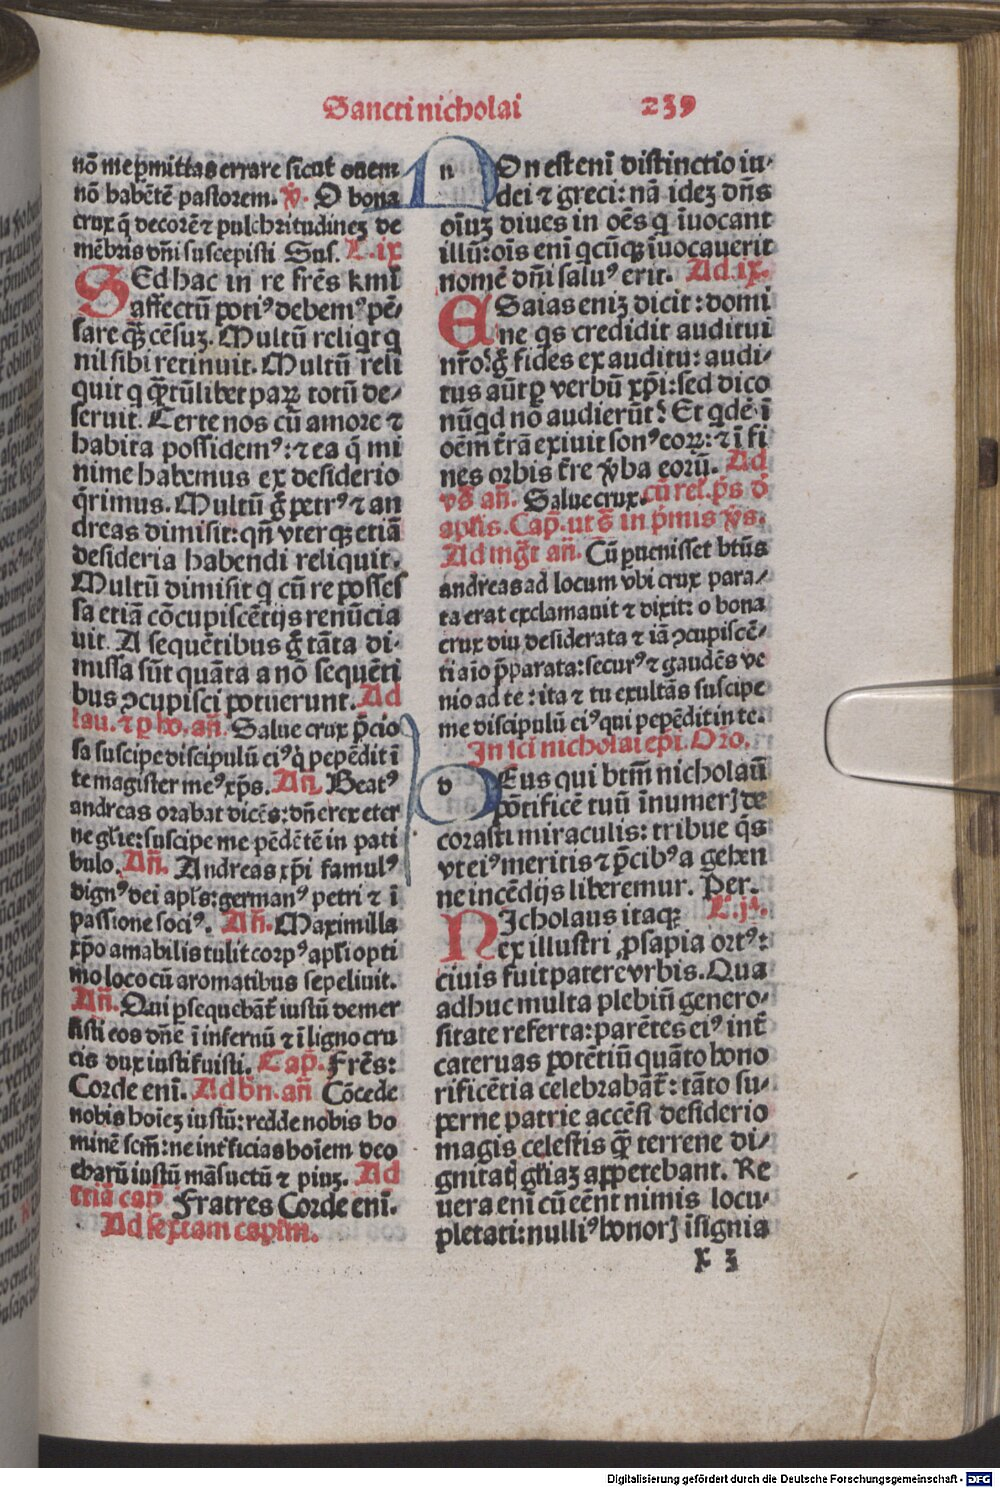 Sancti nicholai 239
nō me ꝑmittas errare sicut ouem
nō habētē pastorem. ℣. O bona
crux q̄ decorē ⁊ pulchritudinez de
mēbris dn̄i suscepisti Sus. L. ix
SEd hac in re fr̄es kmi
affectū poti⁹ debem⁹ pē⸗
sare qꝫ cēsuꝫ. Multū reliqt q
nil sibi retinuit. Multū reli
quit q qꝫtūlibet paꝝ totū de⸗
seruit. Certe nos cū amore ⁊
habita possidem⁹: ⁊ ea q̄ mi
nime habemus ex desiderio
q̄rimus. Multū ḡ petr⁹ ⁊ an
dreas dimisit: qn̄ vterqꝫ etiā
desideria habendi reliquit.
Multū dimisit q cū re posses
sa etiā cōcupiscētijs renūcia
uit. A sequētibus ḡ tāta di⸗
missa sūt quāta a nō sequēti
bus ꝯcupisci potuerunt. Ad
lau. ⁊ p ho. añ. Salue crux p̄cio
sa suscipe discipulū ei⁹ q̄ pepēdit ī
te magister me⁹ xp̄s. Añ. Beat⁹
andreas orabat dicēs: dn̄e rex eter
ne gl̄ie: suscipe me pēdētē in pati
bulo. Añ. Andreas xp̄i famul⁹
dign⁹ dei apl̄s: german⁹ petri ⁊ ī
passione soci⁹. Añ. Maximilla
xp̄o amabilis tulit corp⁹ apl̄i opti
mo loco cū aromatibus sepeliuit.
Añ. Qui ꝑsequebāt iustū demer
sisti eos dn̄e ī infernū ⁊ ī ligno cru
cis dux iusti fuisti. Cap̄. Fr̄es:
Corde enī. Ad bn̄. añ Cōcede
nobis hoīeꝫ iustū: redde nobis ho
minē scm̄: ne int̄ficias hoīem deo
charū iustū māsuetū ⁊ piuꝫ. Ad
t̄tiā cap̄ Fratres Corde enī.
Ad sextam capl̄m.
NOn est enī distinctio iu⸗
dei ⁊ greci: nā ideꝫ dn̄s
oīuꝫ diues in oēs q īuocant
illū: oīs enī qcūqꝫ īuocauerit
nomē dn̄i salu⁹ erit. Ad. ix.
ESaias eniꝫ dicit: domi
ne qs credidit auditui
nr̄o? ḡ fides ex auditu: audi⸗
tus aūt ꝑ verbū xp̄i: sed dico
nūqd nō audierūt? Et qdē ī
oēm t̄rā exiuit son⁹ eoꝝ: ⁊ ī fi
nes orbis t̄re v̄ba eorū. Ad
vs̄ añ. Salue crux. cū rel̄. ps̄ d̄
apl̄is. Cap̄. ut s̄ in p̄mis vs̄.
Ad mḡt añ. Cū ꝑuenisset bt̄us
andreas ad locum vbi crux para⸗
ta erat exclamauit ⁊ dixit: o bona
crux diu desiderata ⁊ iā ꝯcupiscē⸗
ti aīo p̄parata: secur⁹ ⁊ gaudēs ve
nio ad te: ita ⁊ tu exultās suscipe
me discipulū ei⁹ qui pepēdit in te.
In sc̄i nicholai ep̄i. Or̄o.
DEus qui btm̄ nicholaū
pōtificē tuū īnumerꝭ de
corasti miraculis: tribue q̄s
vt ei⁹ meritis ⁊ p̄cib⁹ a gehen
ne incēdijs liberemur. Per.
NIcholaus itaqꝫ L. ja.
ex illustri ꝓsapia ort⁹:
ciuis fuit patere vrbis. Que
adhuc multa plebiū genero⸗
sitate referta: parētes ei⁹ int̄
cateruas potētiū quāto hono
rificētia celebrabāt̄: tāto su⸗
perne patrie accēsi desiderio
magis celestis qꝫ terrene di⸗
gnitatꝭ gl̄iaꝫ appetebant. Re
uera enī cū eēnt nimis locu⸗
pletati: nulli⁹ honorꝭ īsignia
x 3
Digitalisierung gefördert durch die Deutsche Forschungsgemeinschaft - DFG